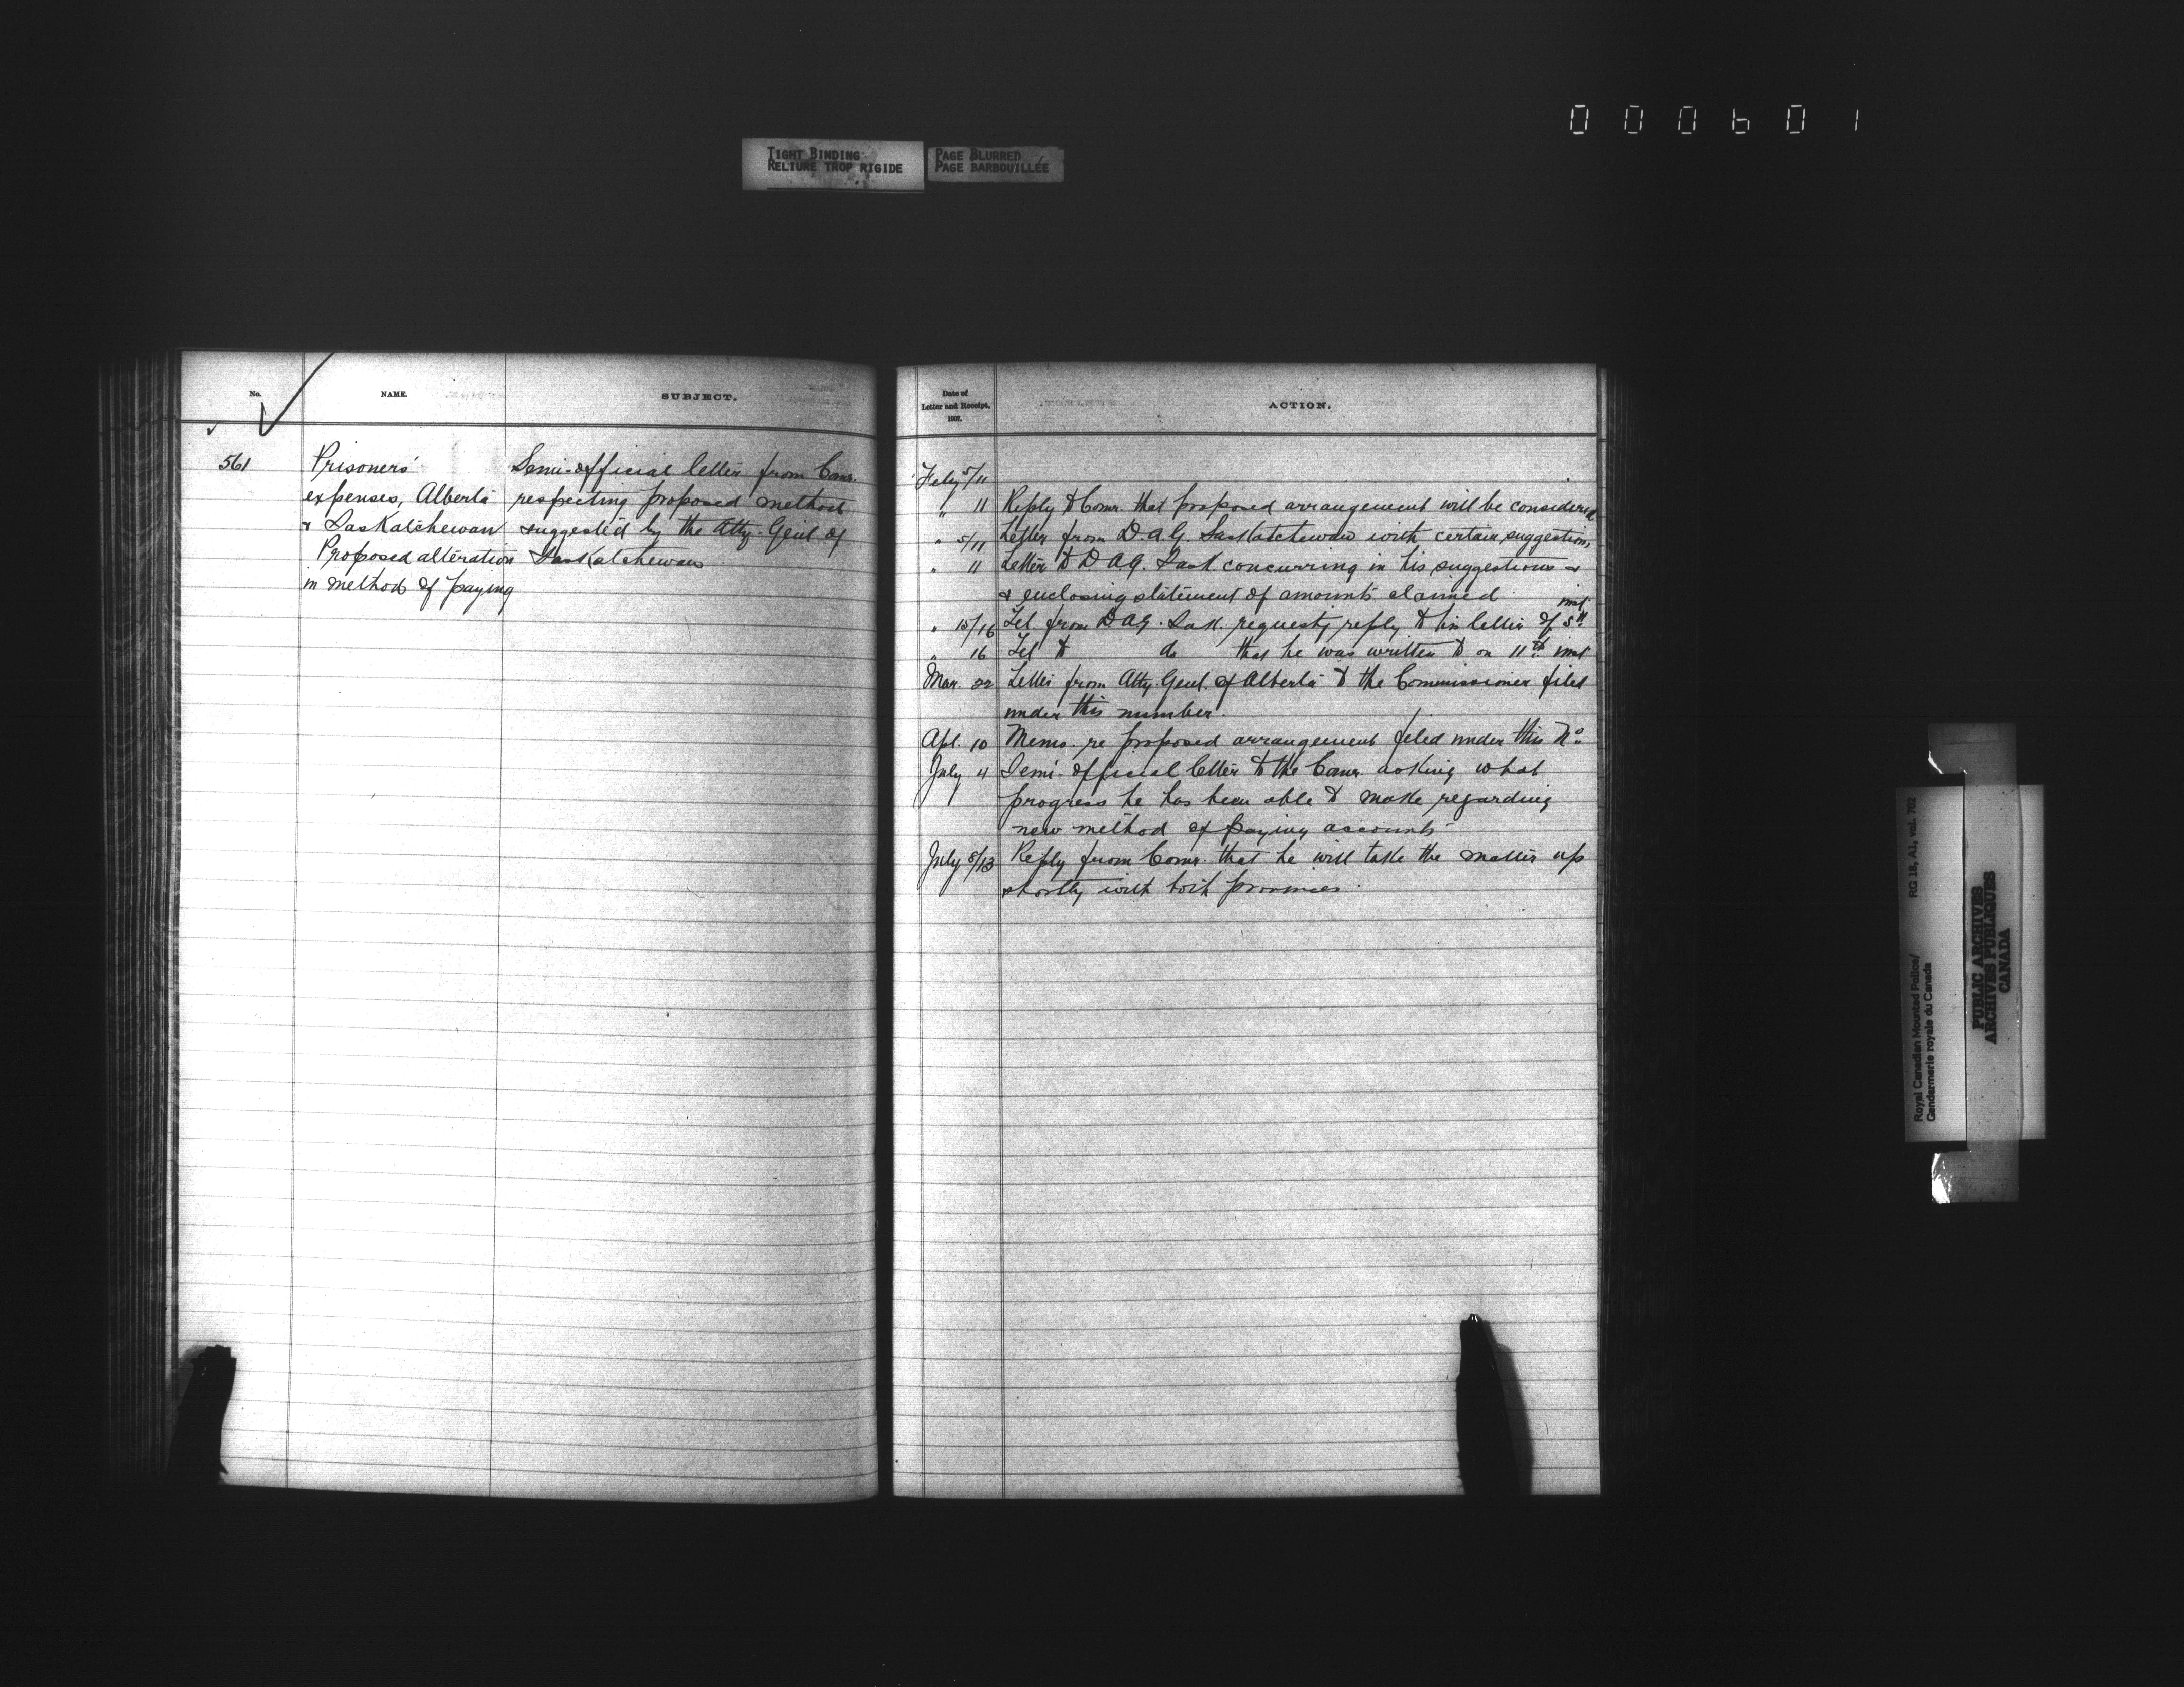 000601
TIGHT BINDING
RELIURE TROP RIGIDE
PAGE BLURRED
PAGE BARBOUILLÉE
No.
NAME.
SUBJECT.
561
Prisoners'
expenses, Alberta
& Saskatchewan
Proposed alteration
in method of paying
Semi-official letter from Comr.
respecting proposed method
suggested by the Atty. Genl of
Saskatchewan
Date of
Letter and Receipt,
1907.
ACTION.
Feby 5/11
" 11 Reply to Comr. that proposed arrangement will be considered
" 5/11 Letter from D.A.G. Saskatchewan with certain suggestions,
" 11 Letter to D.A.G. Sask. concurring in his suggestions &
& enclosing statement of amounts claimed
" 15/16 Tel. from D.A.G. Sask. requestg reply to his letter of 5th inst
" 16 Tel to do that he was written to on 11th inst
Mar. 22 Letter from Atty. Genl. of Alberta to the Commissioner filed
under this number.
Apl. 10 Memo. re proposed arrangement filed under this No.
July 4 Semi-official letter to the Comr. asking what
progress he has been able to make regarding
new method of paying accounts
July 8/13 Reply from Comr. that he will take the matter up
shortly with both provinces.
RG 18, A1, vol. 702
Royal Canadian Mounted Police/
Gendarmerie royale du Canada
PUBLIC ARCHIVES
ARCHIVES PUBLIQUES
CANADA